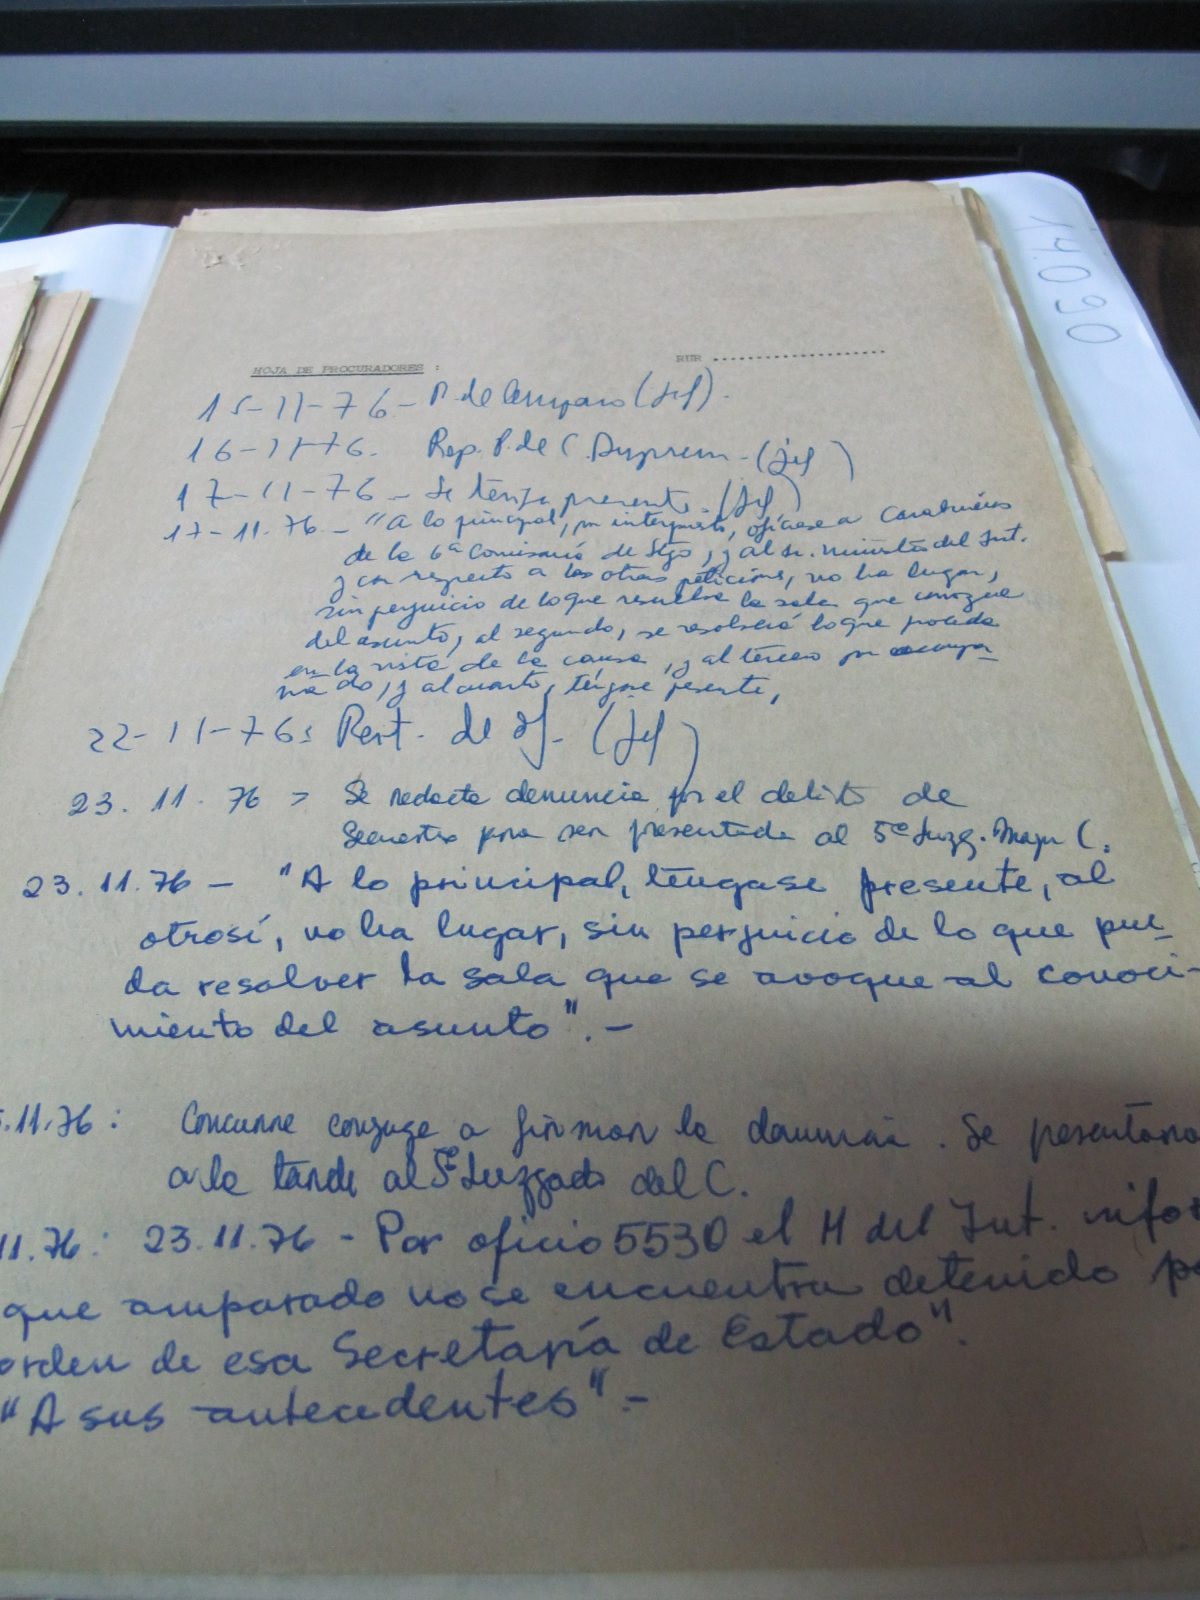 14.090
HOJA DE PROCURADORES :
RUR ....................
15-11-76.- R. de Amparo (jef).-
16-11-76. Rep. P. de C. (jef)
17-11-76 - Se tenga presente. (jef)
17-11.76.- "A lo principal, por interpuesto, ofíciese a Carabineros
de la 6ª Comisaría de Stgo, y al Sr. Ministro del Int.
y con respecto a las otras peticiones, no ha lugar,
sin perjuicio de lo que resuelva la sala que conozca
del asunto, al segundo, se resolverá lo que proceda
en la vista de la causa, y al tercero por acompa-
ñado, y al cuarto, téngase presente,
22-11-76: de of. (jef)
23.11.76 > Se redacta denuncia por el delito de
Secuestro para ser presentada al 5º Juzg. Mayor C.
23.11.76 - "A lo principal, téngase presente, al
otrosí, no ha lugar, sin perjuicio de lo que pue-
da resolver la sala que se avoque al conoci-
miento del asunto".-
.11.76: Concurre conyuge a firmar la denuncia. Se presentará
a la tarde al 5º Juzgado del C.
11.76: 23.11.76 - Por oficio 5530 el M del Int. infor
que amparado no se encuentra detenido po
orden de esa Secretaría de Estado".
"A sus antecedentes".-